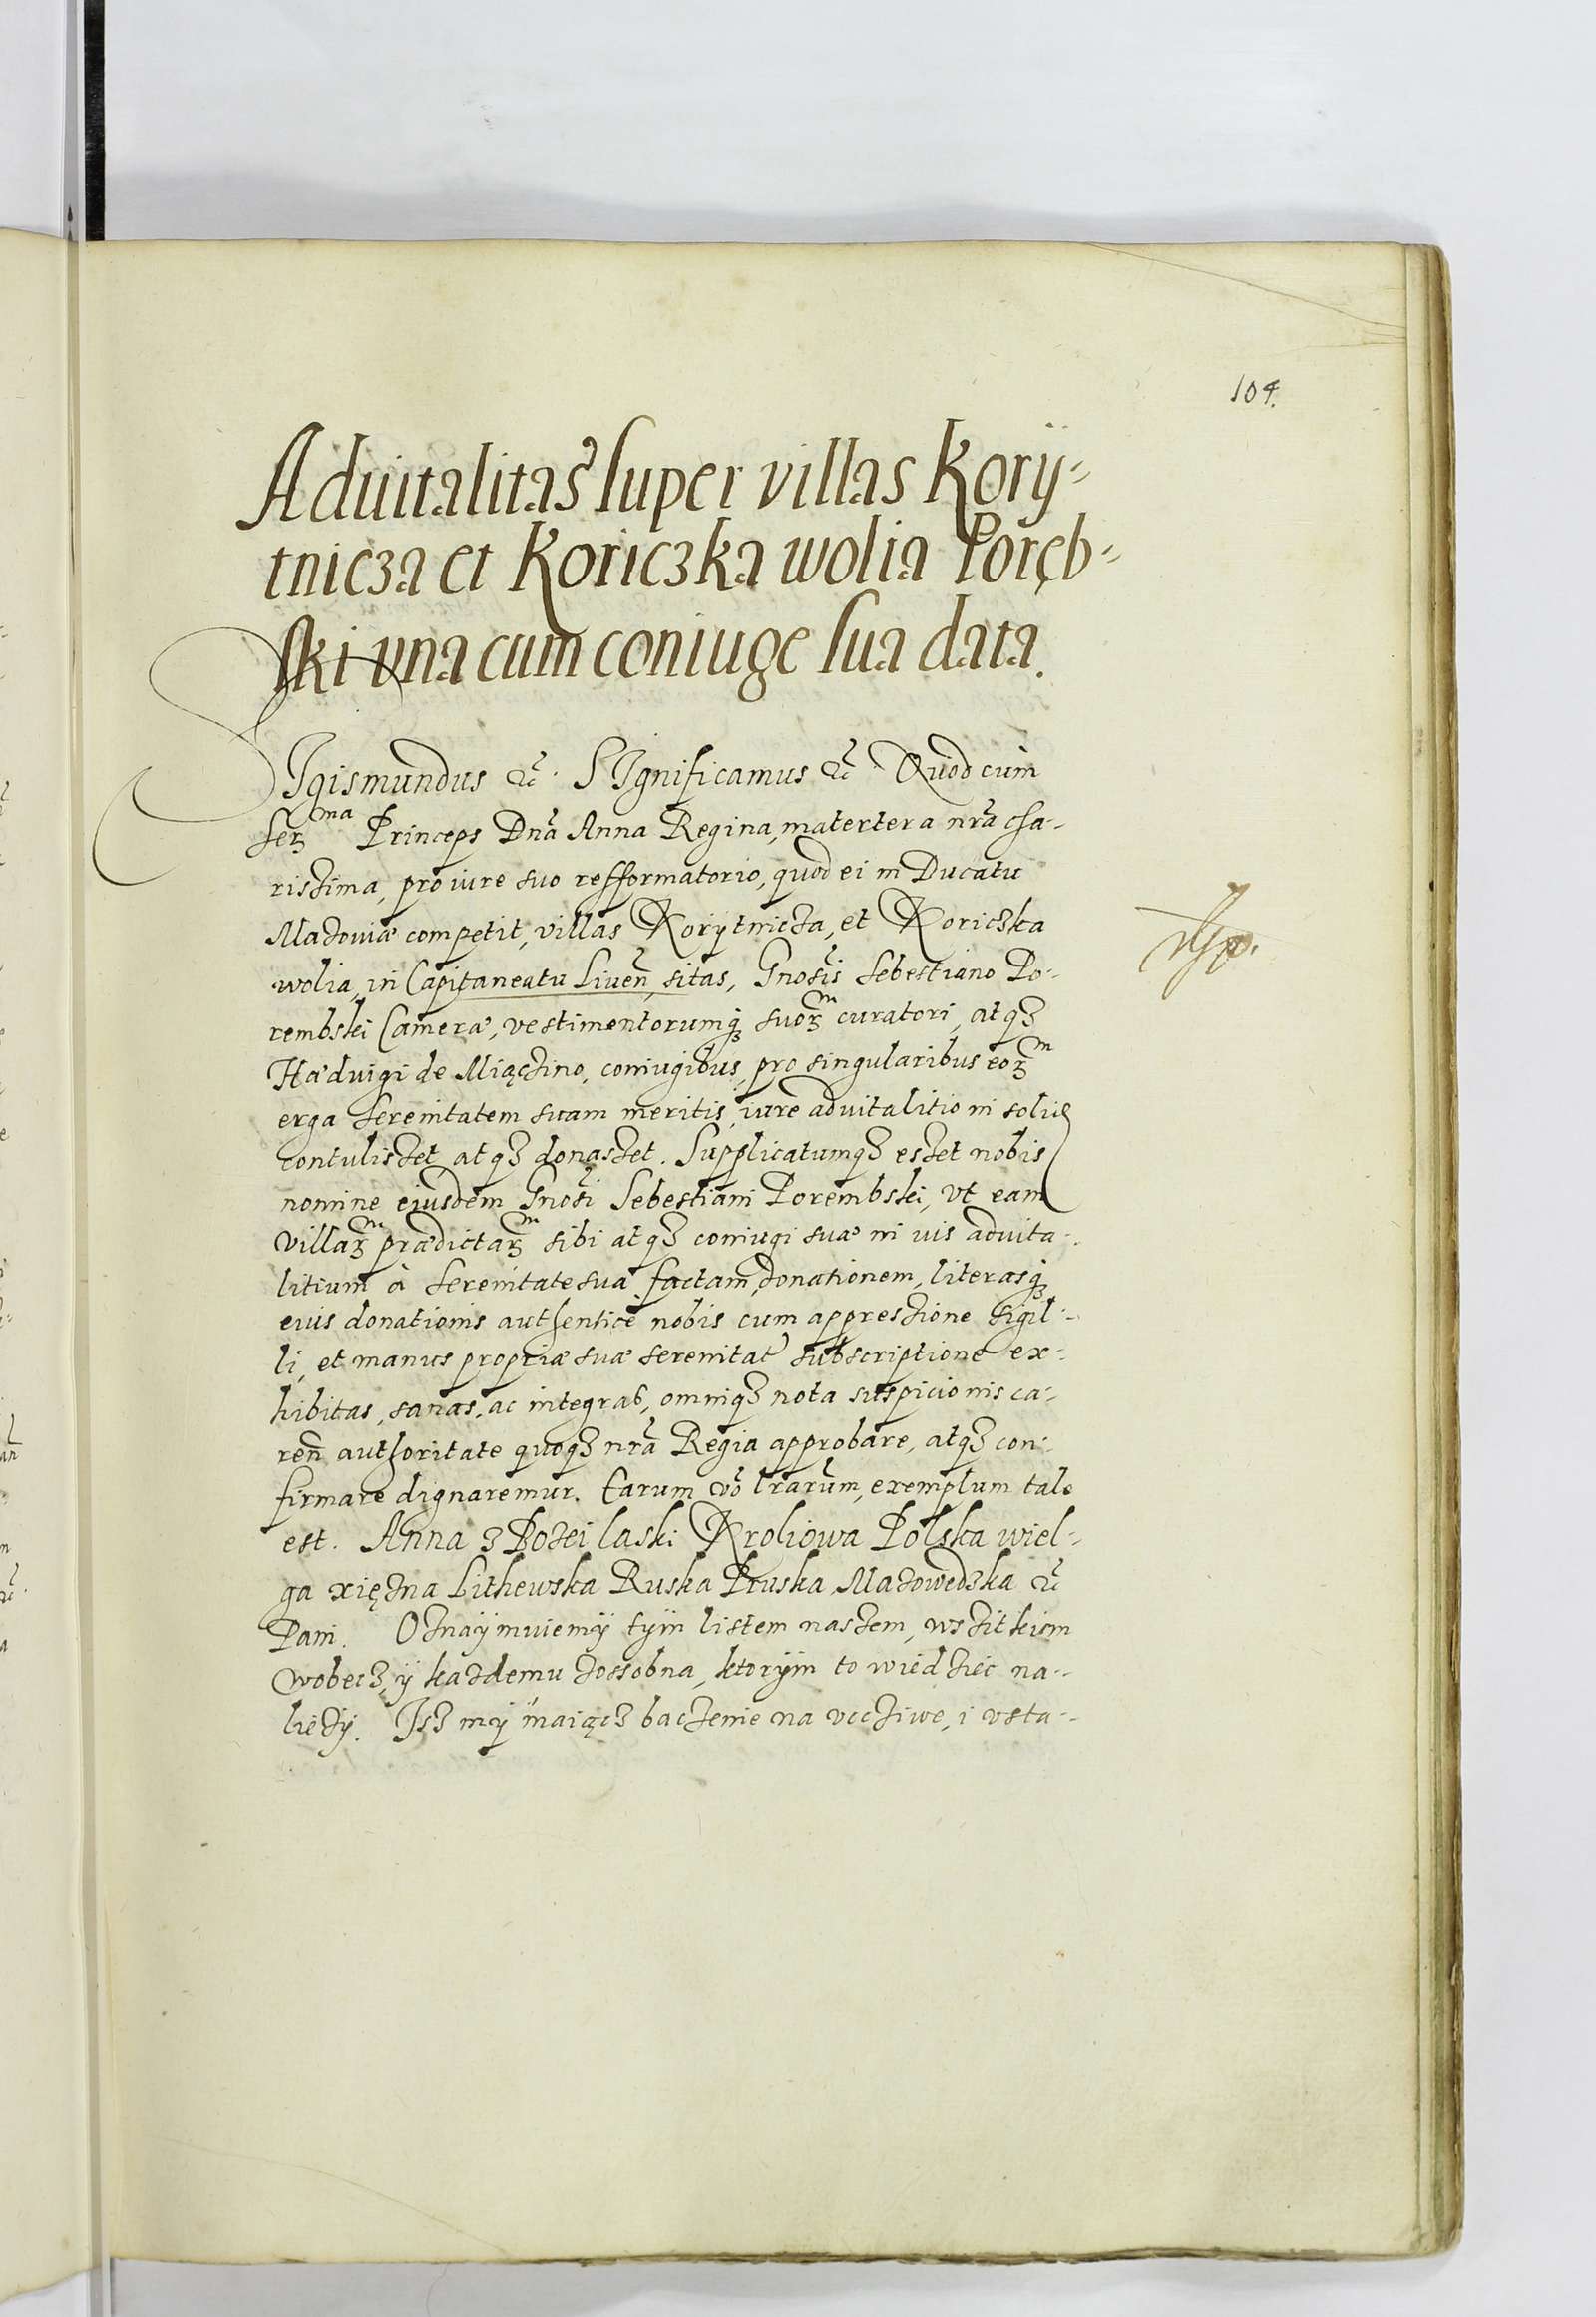 104.
Aduitalitas super villas Korÿ-
tnicza et Koriczka wolia Poręb-
ski vna cum coniuge sua data.
SIgismundus etc. SIgnificamus etc. Quod cùm
Serma Princeps Dna Anna Regina, matertera nra cha-
rissima, pro iure suo refformatorio, quod ei in Ducatu
Mazouiæ competit, villas Korytnicza, et Koriczka
wolia, in Capitaneatu Liuen, sitas, Gnosis Sebestiano Po-
rembski Cameræ, vestimentorumq suorm curatori, atq
Hæduigi de Miączino, coniugibus, pro singularibus eorm
erga Serenitatem suam meritis, iure aduitalitio in solid
contulisset, atq donasset. Supplicatumq esset nobis
nomine eiusdem Gnosi Sebestiani Porembski, vt eam
villarm prædictarm sibi atq coniugi suæ in uis aduita-
litium à Serenitate sua factam, donationem, literasq
eius donationis authenticè nobis cum appressione sigil-
li, et manus propriæ suæ serenitat subscriptione ex-
hibitas, sanas, ac integras, omniq nota suspicionis ca-
ren authoritate quoq nra Regia approbare, atq con-
firmare dignaremur. Earum vo lrarum, exemplum tale
est. Anna z Bozei laski Kroliowa Polska wiel-
ga xiężna Lithewska Ruska Pruska, Mazowedzka etc
Pani. Oznaÿmuiemÿ tÿm listem naszem, wszitkiem
wobecz, ÿ kazdemu zossobna, ktorÿm to wiedziec na-
liezÿ. Isz mÿ maiącz baczenie na vcczciwe, i vsta-